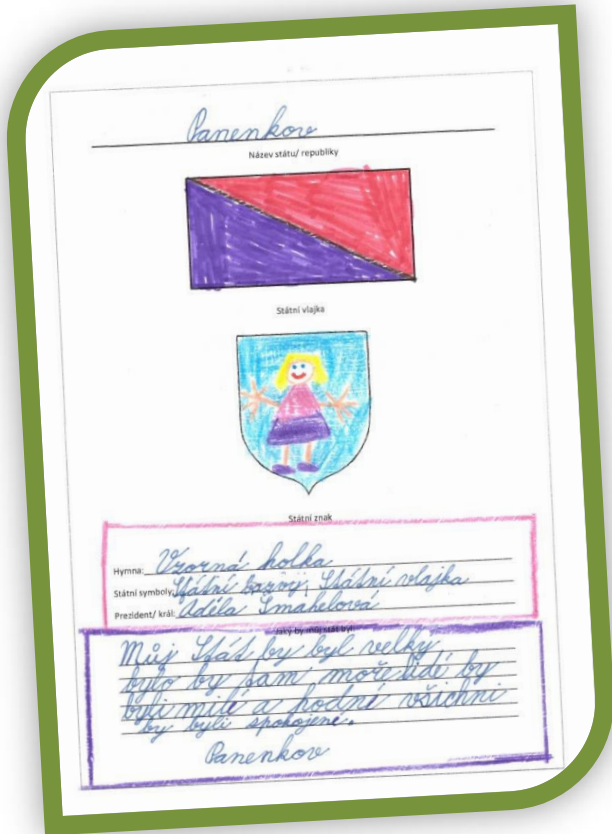 Panenkov
Název státu/ republiky
Státní vlajka
Státní znak
Hymna: Vzorná holka
Státní symboly: Státní barvy, Státní vlajka
Prezident/ král: Adéla Smahelová
Jaký by můj stát byl:
Můj Stát by byl velky,
bylo by tam moře lidi by
byli milé a hodné všichni
by byli spokojene.
Panenkov